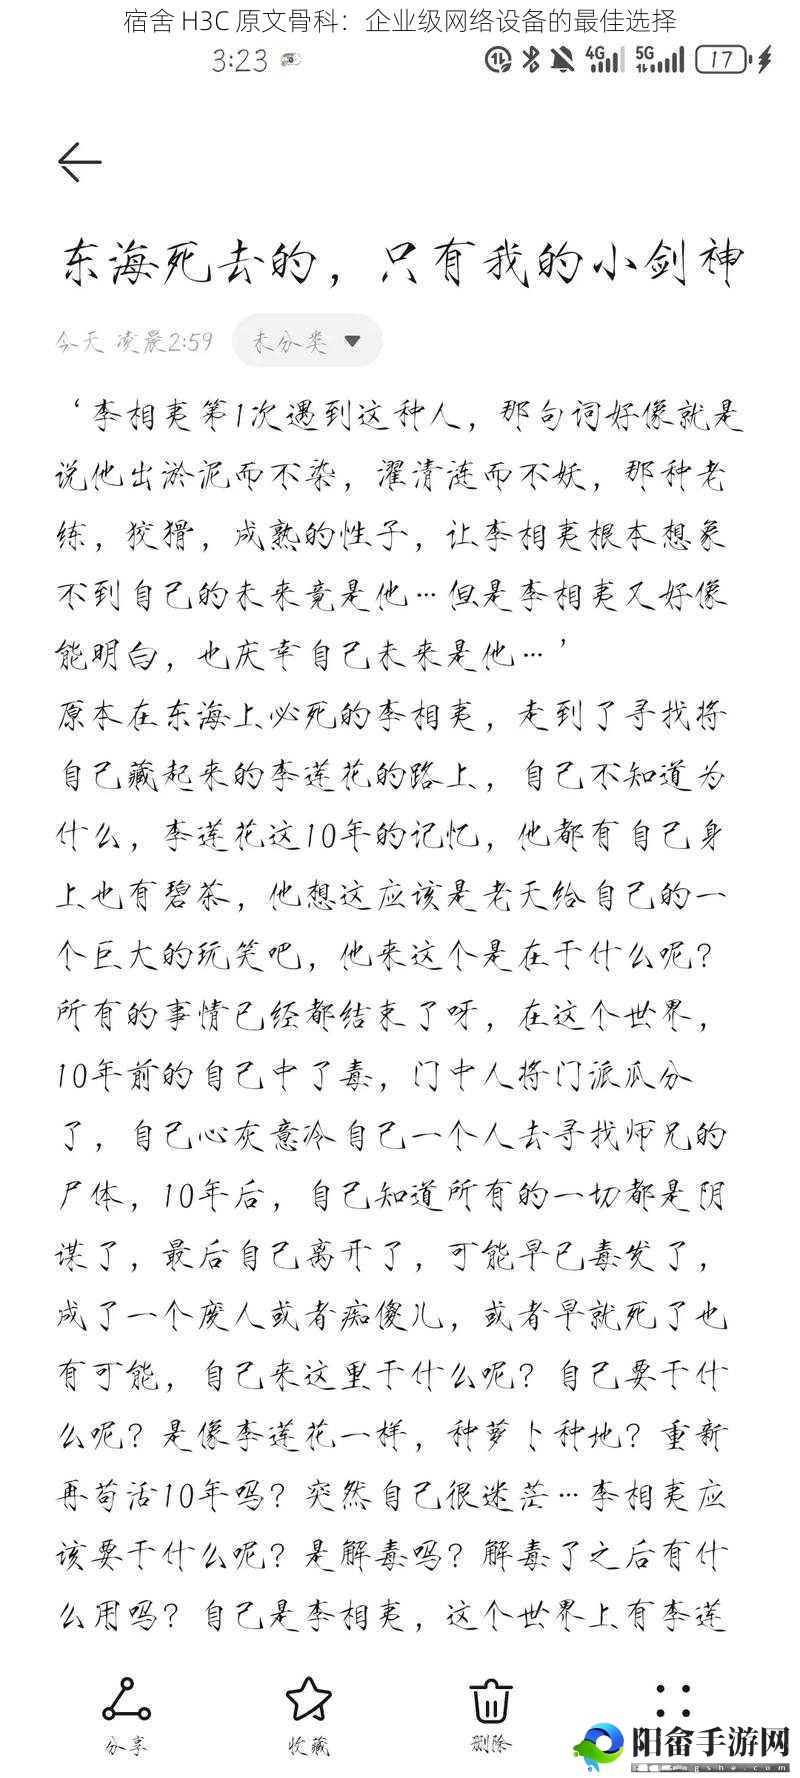 宿舍 H3C 原文骨科：企业级网络设备的最佳选择
3:23 4G 5G 17
东海死去的，只有我的小剑神
今天 凌晨2:59 未分类
‘李相夷第1次遇到这种人，那句词好像就是
说他出淤泥而不染，濯清涟而不妖，那种老
练，狡猾，成熟的性子，让李相夷根本想象
不到自己的未来竟是他…但是李相夷又好像
能明白，也庆幸自己未来是他…’
原本在东海上必死的李相夷，走到了寻找将
自己藏起来的李莲花的路上，自己不知道为
什么，李莲花这10年的记忆，他都有自己身
上也有碧茶，他想这应该是老天给自己的一
个巨大的玩笑吧，他来这个是在干什么呢？
所有的事情已经都结束了呀，在这个世界，
10年前的自己中了毒，门中人将门派瓜分
了，自己心灰意冷自己一个人去寻找师兄的
尸体，10年后，自己知道所有的一切都是阴
谋了，最后自己离开了，可能早已毒发了，
成了一个废人或者痴傻儿，或者早就死了也
有可能，自己来这里干什么呢？自己要干什
么呢？是像李莲花一样，种萝卜种地？重新
再苟活10年吗？突然自己很迷茫…李相夷应
该要干什么呢？是解毒吗？解毒了之后有什
么用吗？自己是李相夷，这个世界上有李莲
分享 收藏 删除
阳龠手游网